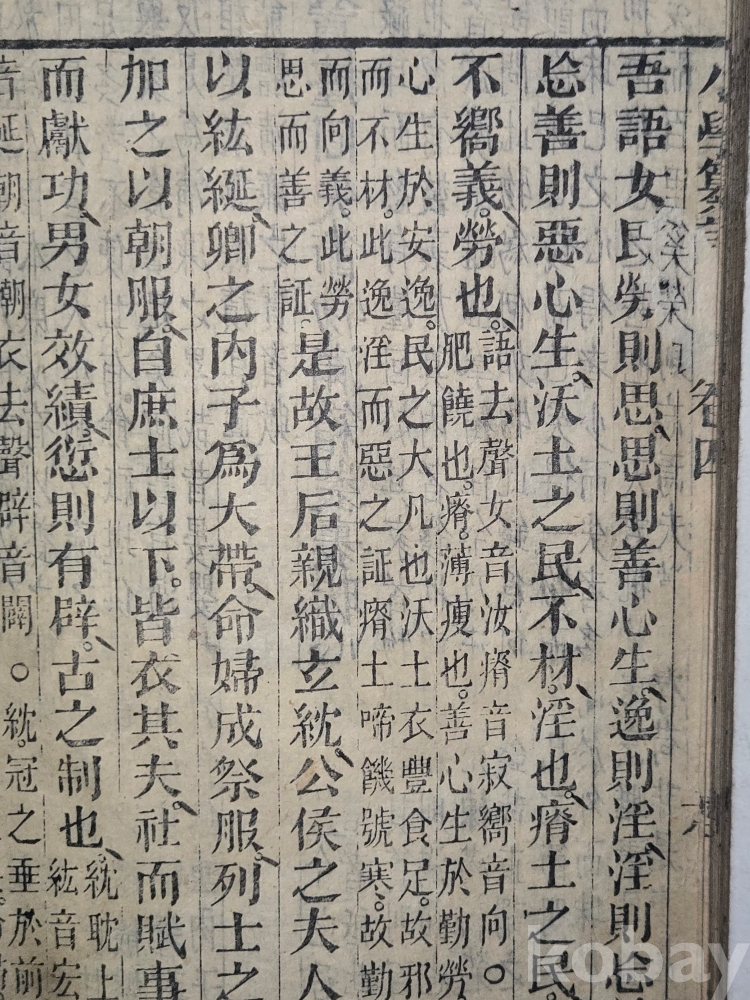 小學纂 卷四
吾語女民勞則思、思則善心生、逸則淫、淫則忘
忘善則惡心生、沃土之民、不材、淫也。瘠土之民
不嚮義。勞也。
語去聲女音汝瘠音寂嚮音向○
肥饒也。瘠。薄瘦也。善心生於勤勞。
心生於安逸。民之大凡也沃土衣豐食足。故邪
而不材。此逸淫而惡之証瘠土啼饑號寒。故勤
而向義。此勞
思而善之証
是故王后親織玄紞、公侯之夫人
以紘綖、卿之內子爲大帶、命婦成祭服。列士之
加之以朝服、自庶士以下。皆衣其夫。社而賦事
而獻功、男女效績、愆則有辟、古之制也、
紞耽上
紘音宏
音延朝音潮衣去聲辟音闢○紞。冠之垂於前
bobay